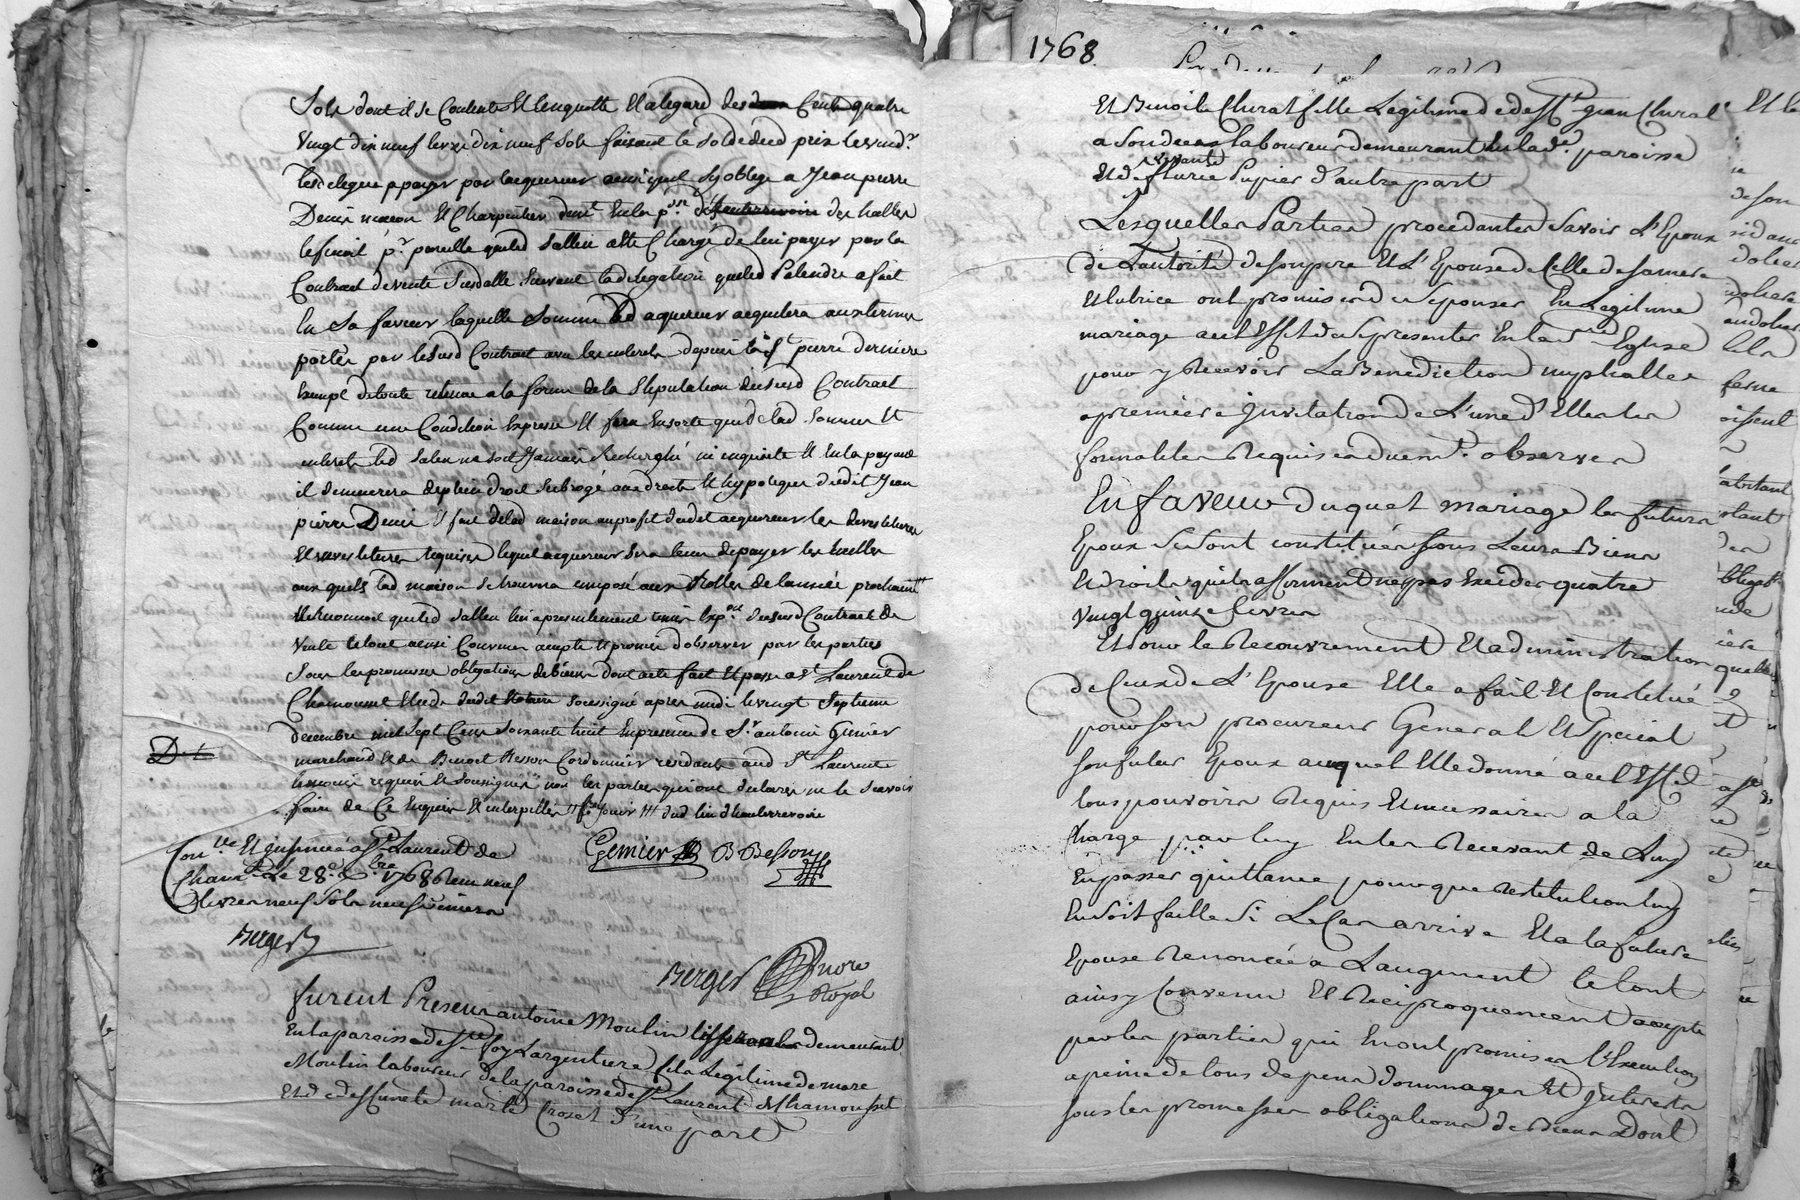 Sols dont il se Contente Et lenquitte Et alegard des Cent quatre
vingt dix neuf livres dix neuf Sols faisant le Solde dud prix levend.r
les delegue a payer par lacquereur ainsi quil Sy oblige a Jean pierre
Denis macon Et Charpentier dem.t En la p.sse des halles
lefenoit p.r pareille queled Sallien a Eté Chargé de luy payer par le
Contract devente Susdatte Suivant ladelegation queled a fait
En Sa faveur laquelle Somme led aquereur acquitera aux termes
portés par lesusd Contract avec les interets depuis la S.t pierre derniere
Exempt detoute retenue a la forme de la Stipulation dususd Contract
Comme une Condition Expresse Et fera Ensorte que de lad Somme Et
interets led Salien ne Soit Jamais Recherché ni inquieté Et En la payant
il demeurera deplein droit Subrogé aux droits Et hypoteques dudit Jean
pierre Denis Et fait delad maison au profit dudit acquereur les devestitures
Et investitures requises lequel acquereur Sera tenu depayer les tailles
aux quels lad maison Se trouvera imposé aux Rolles de lannée prochaine
Et Reconnoit queled Sallien luy a presentement remis Exp.on dususd Contract de
Vente le tout ainsi Convenu accepté Et promis dobserver par les parties
Sous les promesses obligations de biens dont acte fait Et passé a S.t Laurent de
Chamousset Etude dudit Notaire Soussigné apres midi le vingt Septieme
decembre mil Sept Cens Soixante huit En presence de S.r antoine Gemier
marchand Et de Benoit Besson Cordonnier residants aud S.t Laurent
temoins requis Et Soussignés non les parties qui ont declarer ne le Scavoir
faire de Ce Enquis Et interpellés
Con.lle Et insinué a S.t Laurent de
Cham.t Le 28.e x.bre 1768 Reçu neuf
livres neuf Sols neuf deniers
Gemier B Besson
Berger
Berger Nore Royal
furent Presens antoine Moulin demeurant
En la paroisse de S.te foy Largentiere fils Legitime de more
Moulin laboureur de la paroisse de S.t Laurent de Chamousset
Et de deffunete marie Crozet d'une part
1768
Et Benoite Clurat fille Legitime de deff.t Jean Clurat
a Son deces laboureur demeurant En lad.e paroisse
vivante
Et de fleurie Pupier d'autre part
Lesquelles Parties procedantes Savoir L'Epoux
de Lautorité de Son pere Et L'Epouse de Celle de Sa mere
Et tutrice ont promises de S'epouser En Legitime
mariage a cet Effet de Se presenter En la S.te Eglise
pour y Recevoir La Benediction nuptialle a
a premiere Invitation de L'une d'Elles les
formalites Requises duem.t observer
En faveur Duquel mariage les futurs
Epoux Se Sont constitués tous Leurs Biens
Et droits quils afferment Ne pas Exceder quatre
vingt quinze livres
Et pour le Recouvrement Et administration
de Ceux de L'Epouse Elle a fait Et Constitué
pour Son procureur General Et Special
Son futur Epoux auquel Elle donné a cet Effet
tous pouvoirs Requis Et necessaires a la
Charge par luy En les Recevant de Luy
En passer quittance pour que Restitution luy
En Soit faitte Si Le Cas arrive Et a la future
Epouse Renoncée a Laugment le tout
ainsy Convenu Et Reciproquement accepté
par les parties qui En ont promises l'Execution
a peine de tous depens dommages Et Interests
Sous les promesses obligations de Biens Dont